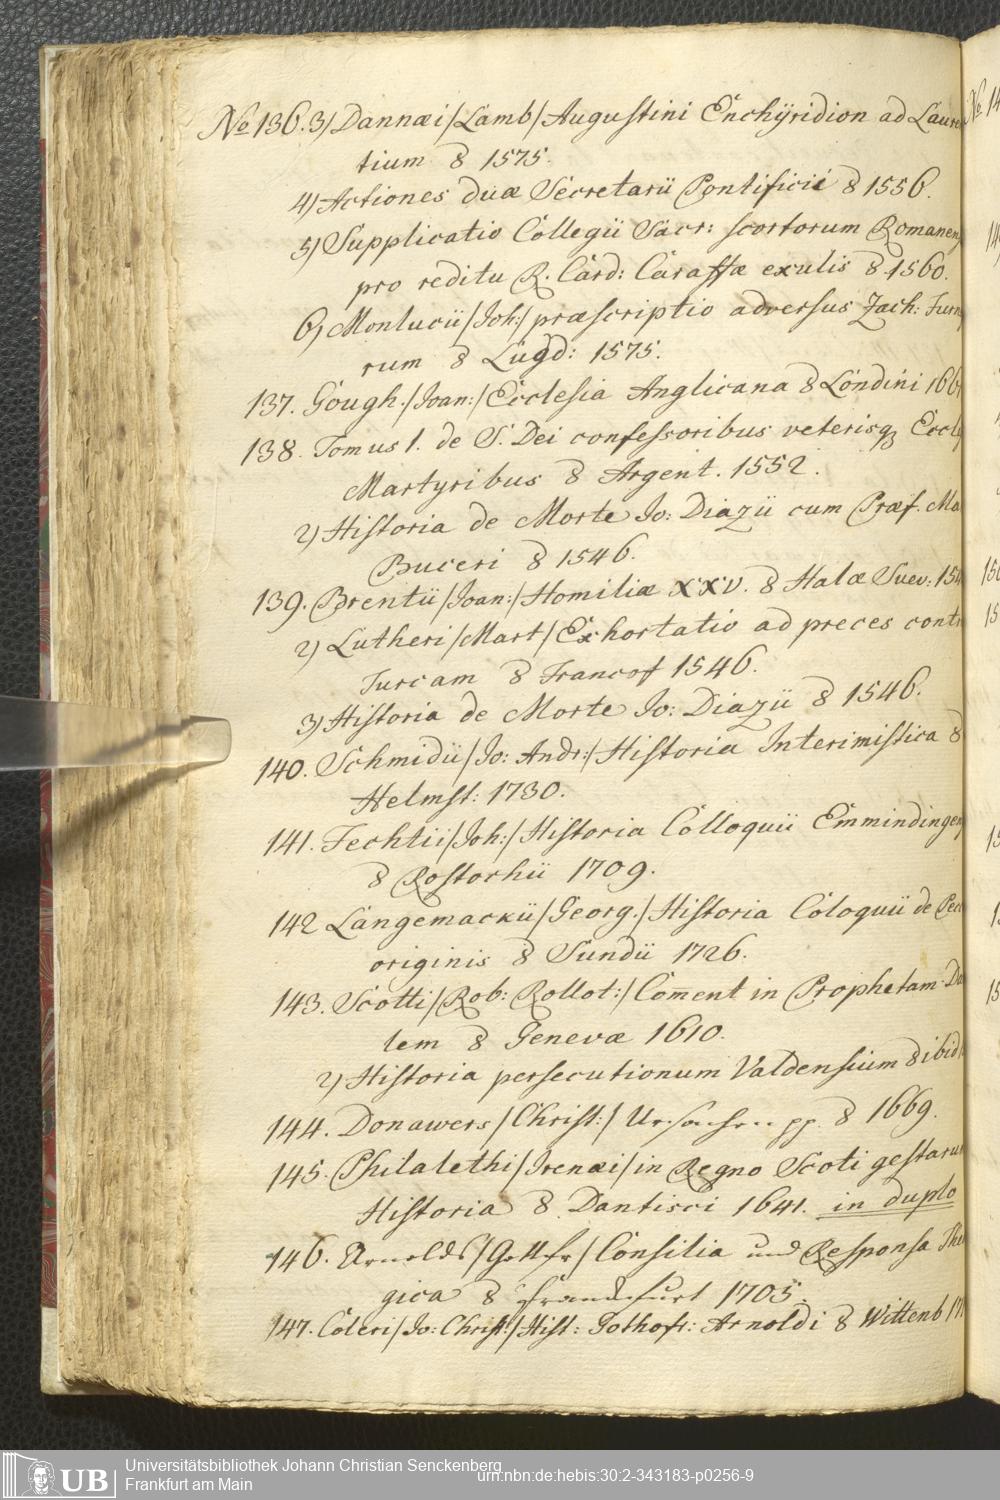 No 136. 3) Dannæi /Lamb/ Augustini Enchÿridion ad Lauren
tium 8 1575.
4) Actiones duæ Secretarii Pontificii 8 1556.
5) Supplicatio Collegii Sacr: scortorum Romanen
pro reditu R. Card: Caraffæ exulis 8. 1560.
6) Monlucii /Joh:/ præscriptio adversus Zach: Furn
rum 8 Lugd: 1575.
137. Gough. /Joan:/ Ecclesia Anglicana 8 Londini 16
138. Tomus 1. de S. Dei confessoribus veterisq Eccl
Martyribus 8 Argent. 1552.
2) Historia de Morte Jo: Diazii cum Præf. Ma
Buceri 8 1546.
139. Brentii /Joan:/ Homiliæ XXV. 8 Halæ Suev: 15
2) Lutheri /Mart/ Exhortatio ad preces contr
Turcam 8 Francof 1546.
3) Historia de Morte Jo: Diazii 8 1546.
140. Schmidii /Jo: Andr:/ Historia Interimistica 8
Helmst: 1730.
141. Fechtii /Joh:/ Historia Colloquii Emmindingen
8 Rostochii 1709.
142 Langemackii /Georg./ Historia Coloquii de Pecc
originis 8 Sundii 1726.
143. Scotti /Rob: Rollot:/ Com̅ent in Prophetam Da
lem 8 Genevæ 1610.
2) Historia persecutionum Valdensium 8 ibid
144. Donawers /Christ:/ Ursachen pp. 8 1669.
145. Philalethi /Irenæi/ in Regno Scoti gestarum
Historia 8 Dantisci 1641. in duplo
146. Arnolds /Gottfr/ Consilia und Responsa Theo
gica 8 Franckfurt 1705.
147. Coleri /Jo: Christ:/ Hist: Gothofr: Arnoldi 8 Wittenb 17
No 14
UB
Universitätsbibliothek Johann Christian Senckenberg
Frankfurt am Main
urn:nbn:de:hebis:30:2-343183-p0256-9